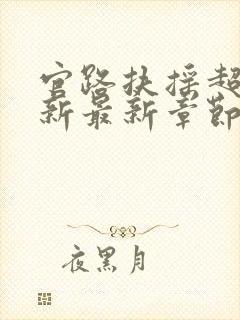 官路扶摇超
新最新章节
夜黑月